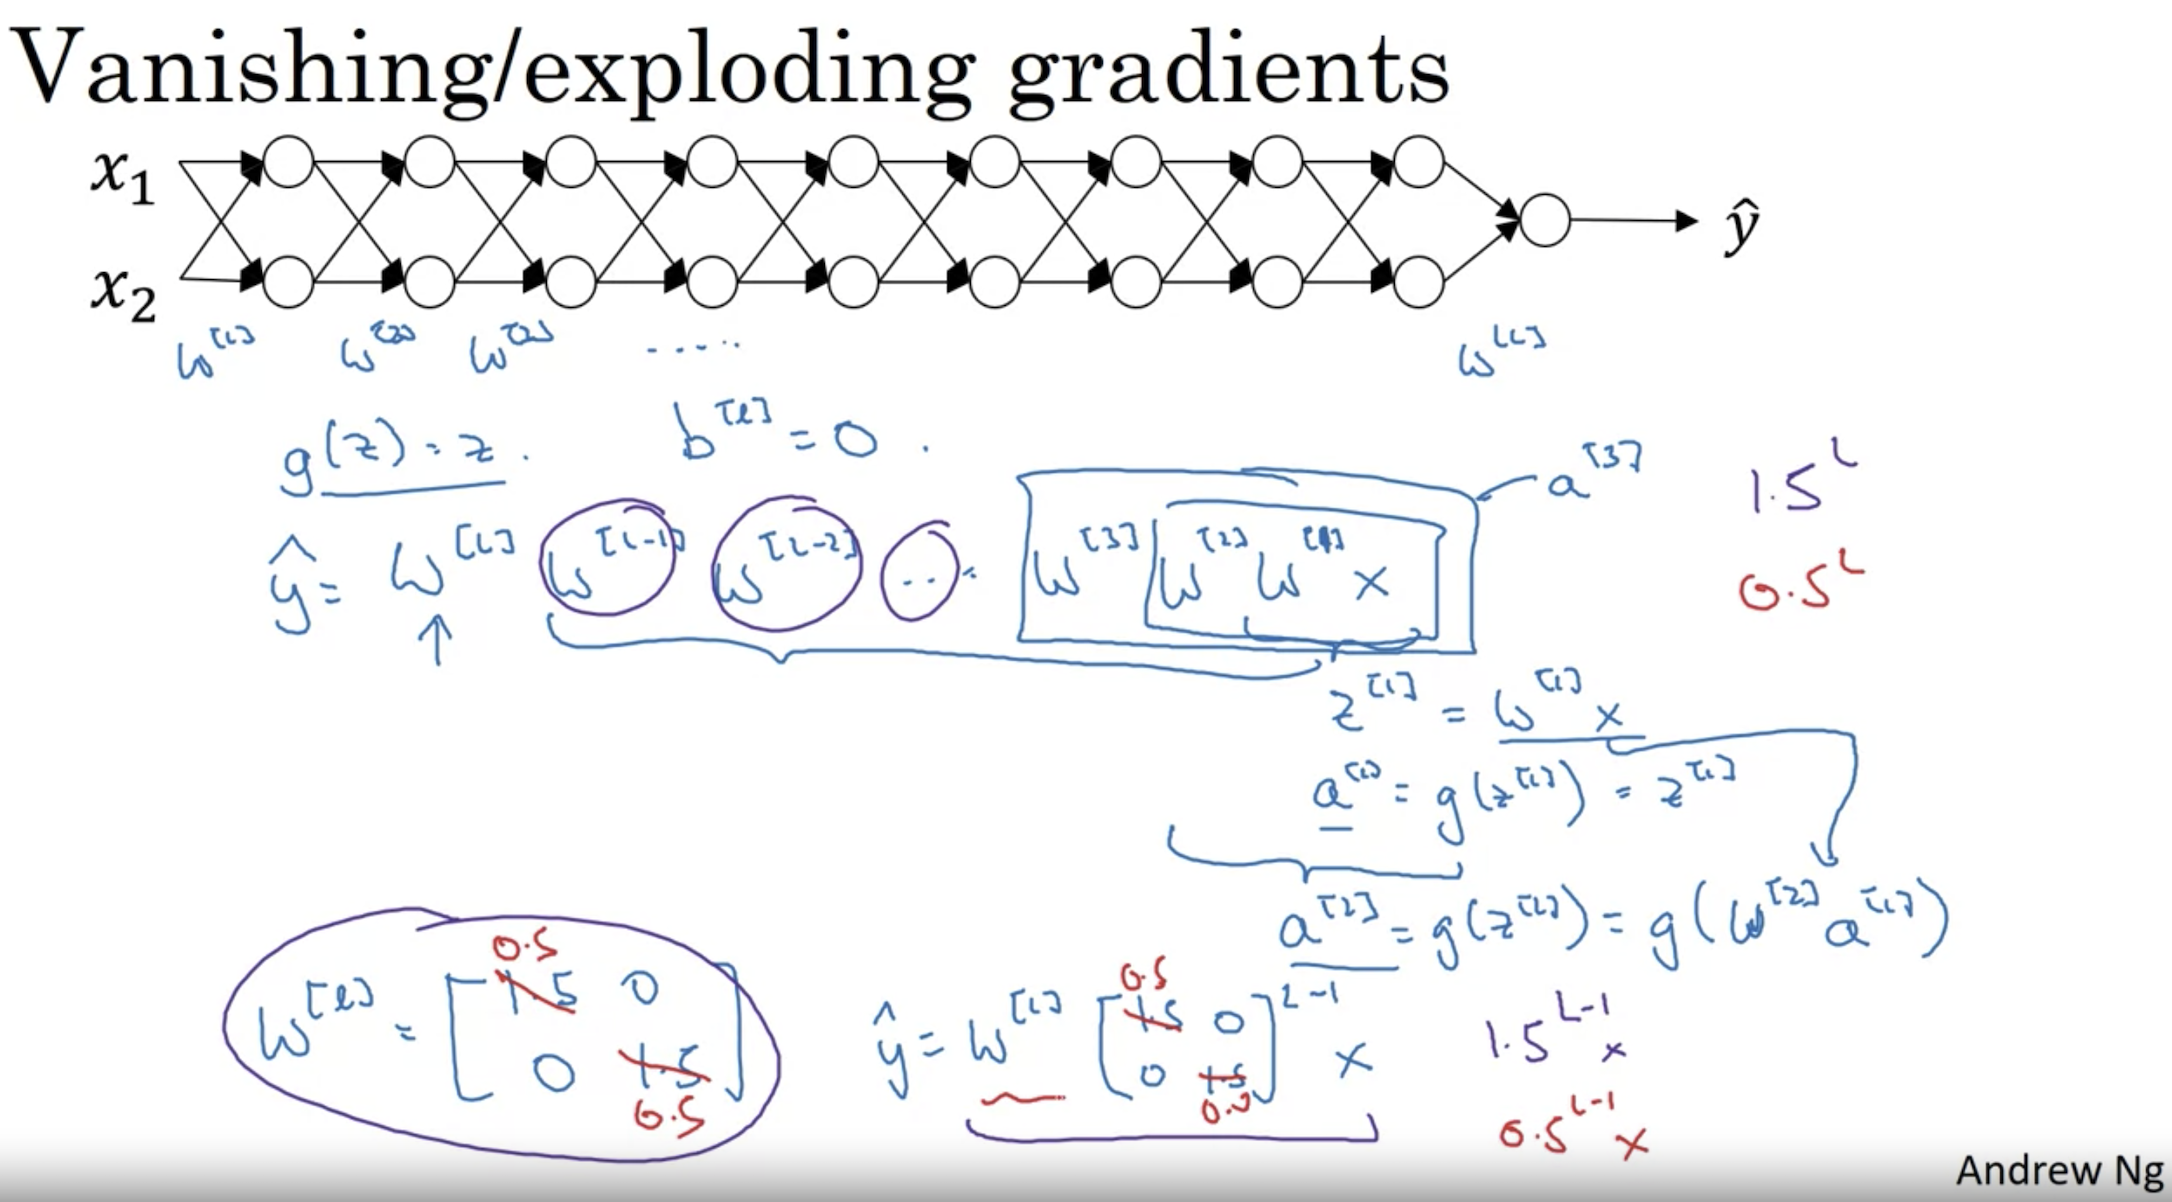 Vanishing/exploding gradients
x₁
x₂
ŷ
w^[1] w^[2] w^[3] ..... w^[L]
g(z) = z. b^[l] = 0.
ŷ = w^[L] w^[L-1] w^[L-2] ... w^[3] w^[2] w^[1] x
a^[3]
1.5^L
0.5^L
z^[1] = w^[1] x
a^[1] = g(z^[1]) = z^[1]
a^[2] = g(z^[2]) = g(w^[2] a^[1])
w^[l] = [1.5 0
0 1.5]
0.5
0.5
ŷ = w^[L] [1.5 0
0 1.5]^L-1 x
0.5
0.5
1.5^L-1 x
0.5^L-1 x
Andrew Ng